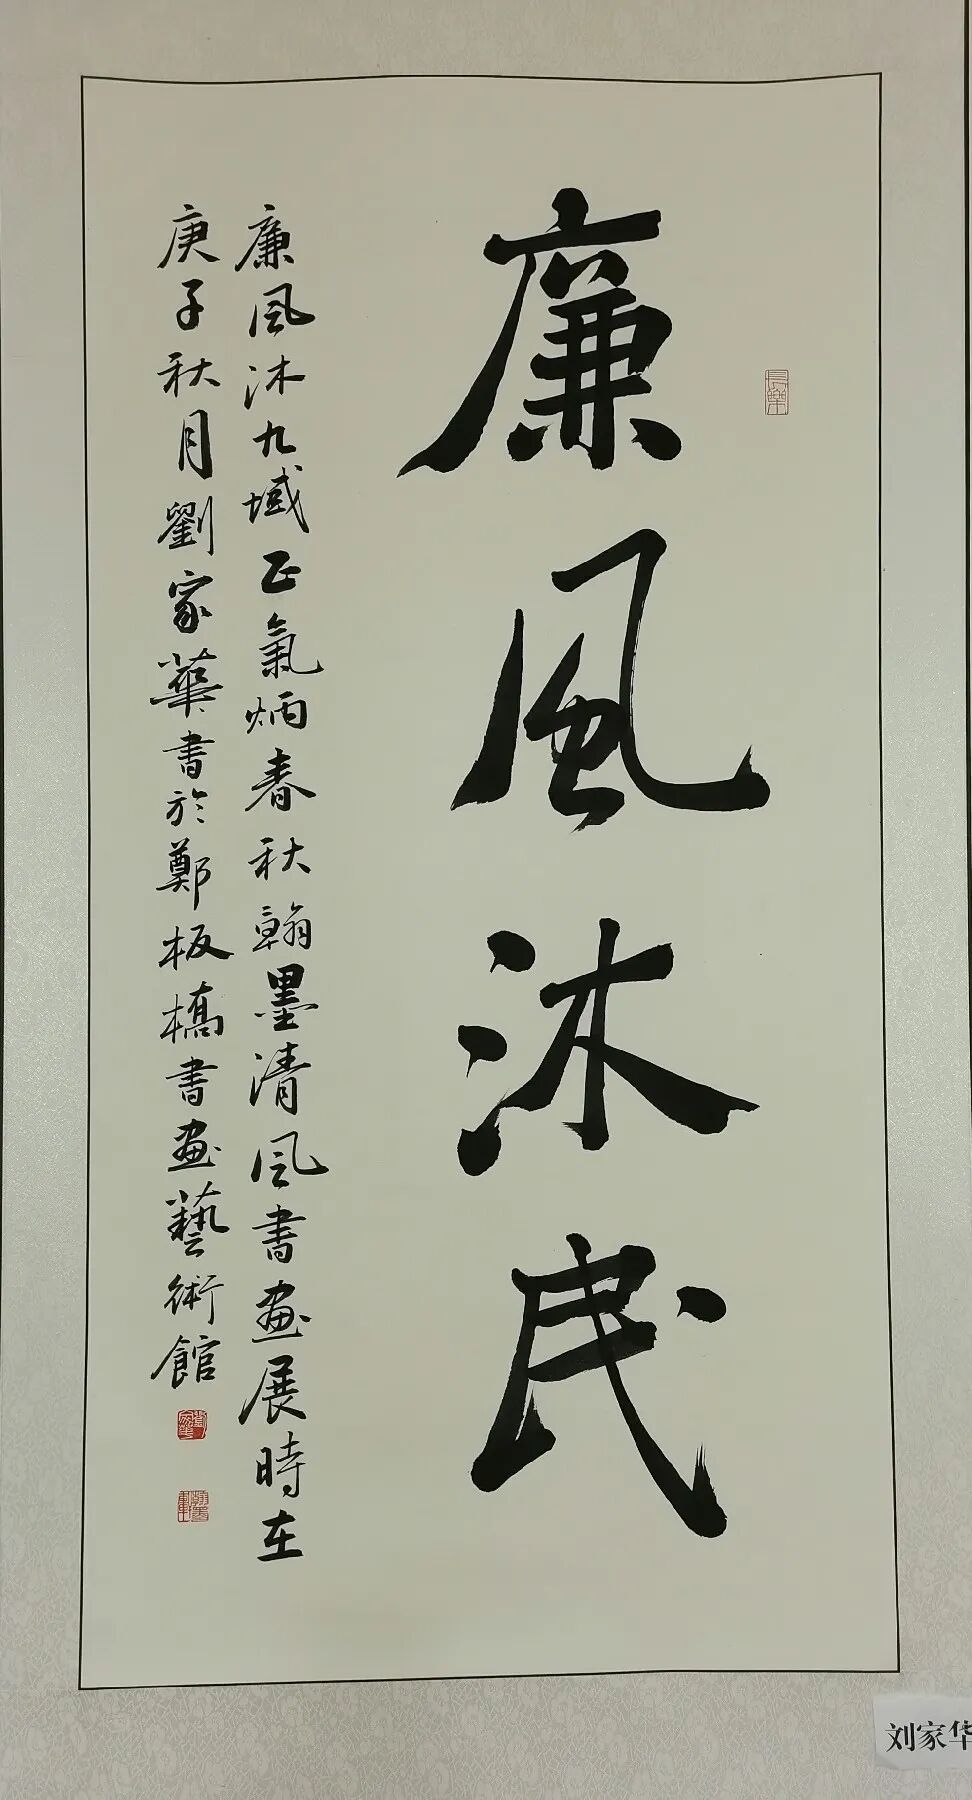 廉風沐民
廉風沐九域正氣炳春秋翰墨清風書畫展時在
庚子秋月劉家華書於鄭板橋書畫藝術館
長樂
刘家华